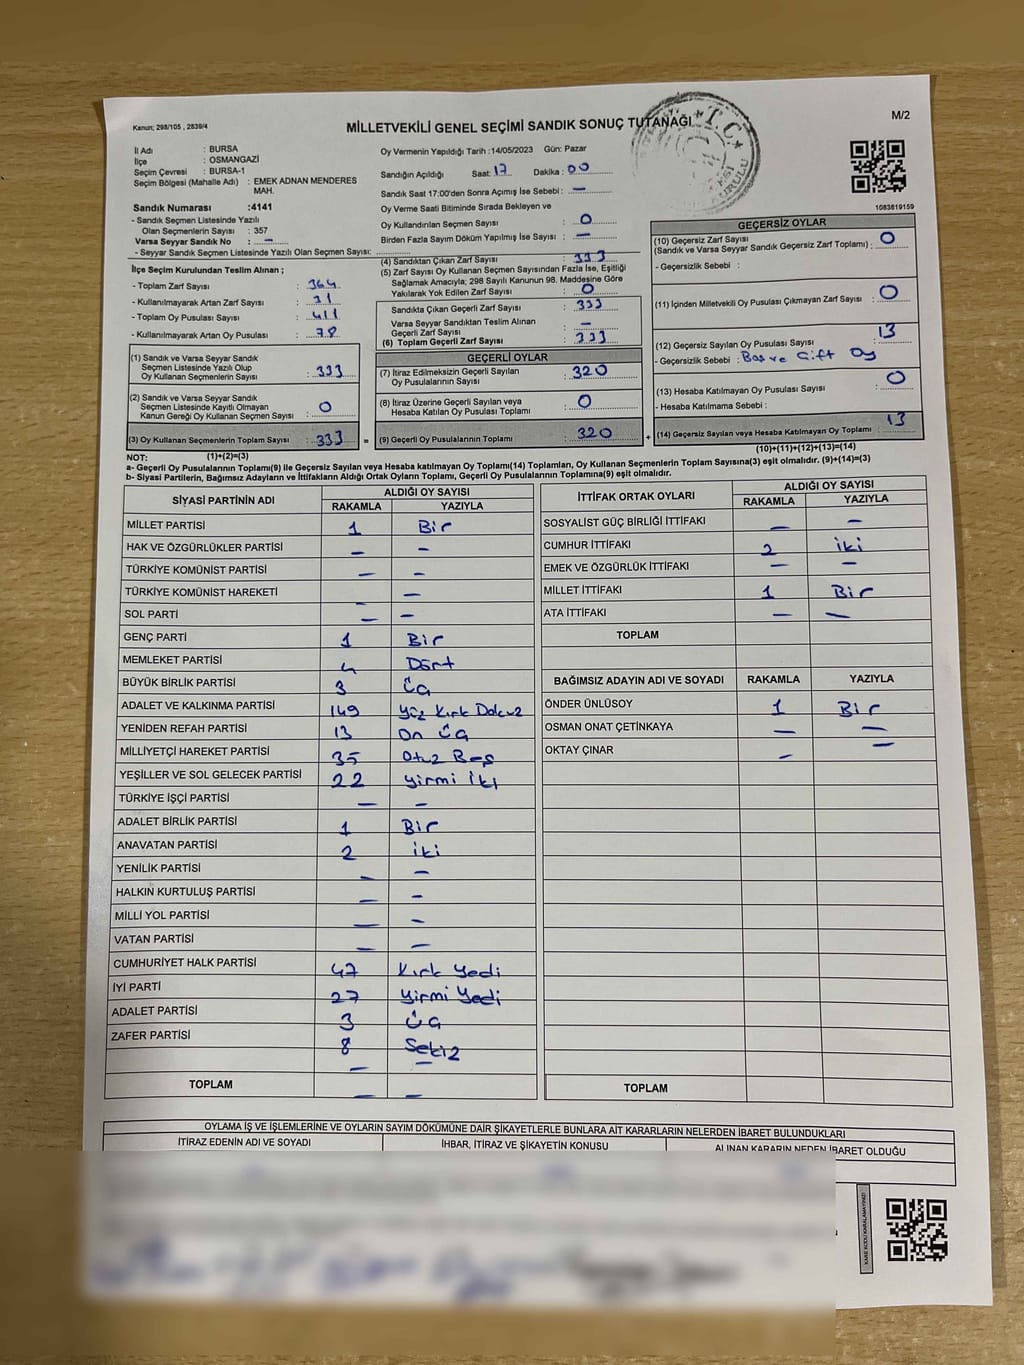 Kanun; 298/105 , 2839/4
MİLLETVEKİLİ GENEL SEÇİMİ SANDIK SONUÇ TUTANAĞI
M/2
T.C.
İl Adı : BURSA
İlçe : OSMANGAZİ
Seçim Çevresi : BURSA-1
Seçim Bölgesi (Mahalle Adı) : EMEK ADNAN MENDERES MAH.
Sandık Numarası :4141
- Sandık Seçmen Listesinde Yazılı
Olan Seçmenlerin Sayısı : 357
Varsa Seyyar Sandık No : –
- Seyyar Sandık Seçmen Listesinde Yazılı Olan Seçmen Sayısı:
İlçe Seçim Kurulundan Teslim Alınan ;
- Toplam Zarf Sayısı : 364
- Kullanılmayarak Artan Zarf Sayısı : 31
- Toplam Oy Pusulası Sayısı : 411
- Kullanılmayarak Artan Oy Pusulası : 78
(1) Sandık ve Varsa Seyyar Sandık
Seçmen Listesinde Yazılı Olup
Oy Kullanan Seçmenlerin Sayısı : 333
(2) Sandık ve Varsa Seyyar Sandık
Seçmen Listesinde Kayıtlı Olmayan
Kanun Gereği Oy Kullanan Seçmen Sayısı : 0
(3) Oy Kullanan Seçmenlerin Toplam Sayısı : 333 =
Oy Vermenin Yapıldığı Tarih :14/05/2023 Gün: Pazar
Sandığın Açıldığı Saat: 17 Dakika : 00
Sandık Saat 17:00'den Sonra Açımış İse Sebebi : –
Oy Verme Saati Bitiminde Sırada Bekleyen ve
Oy Kullandırılan Seçmen Sayısı : 0
Birden Fazla Sayım Döküm Yapılmış İse Sayısı : –
(4) Sandıktan Çıkan Zarf Sayısı : 333
(5) Zarf Sayısı Oy Kullanan Seçmen Sayısından Fazla İse, Eşitliği
Sağlamak Amacıyla; 298 Sayılı Kanunun 98. Maddesine Göre
Yakılarak Yok Edilen Zarf Sayısı : 0
Sandıkta Çıkan Geçerli Zarf Sayısı : 333
Varsa Seyyar Sandıktan Teslim Alınan
Geçerli Zarf Sayısı : –
(6) Toplam Geçerli Zarf Sayısı : 333
GEÇERLİ OYLAR
(7) İtiraz Edilmeksizin Geçerli Sayılan
Oy Pusulalarının Sayısı : 320
(8) İtiraz Üzerine Geçerli Sayılan veya
Hesaba Katılan Oy Pusulası Toplamı : 0
(9) Geçerli Oy Pusulalarının Toplamı : 320 +
1083819159
GEÇERSİZ OYLAR
(10) Geçersiz Zarf Sayısı
(Sandık ve Varsa Seyyar Sandık Geçersiz Zarf Toplamı) : 0
- Geçersizlik Sebebi :
(11) İçinden Milletvekili Oy Pusulası Çıkmayan Zarf Sayısı : 0
(12) Geçersiz Sayılan Oy Pusulası Sayısı : 13
- Geçersizlik Sebebi : Boş ve Çift Oy
(13) Hesaba Katılmayan Oy Pusulası Sayısı : 0
- Hesaba Katılmama Sebebi :
(14) Geçersiz Sayılan veya Hesaba Katılmayan Oy Toplamı : 13
NOT: (1)+(2)=(3) (10)+(11)+(12)+(13)=(14)
a- Geçerli Oy Pusulalarının Toplamı(9) ile Geçersiz Sayılan veya Hesaba katılmayan Oy Toplamı(14) Toplamları, Oy Kullanan Seçmenlerin Toplam Sayısına(3) eşit olmalıdır. (9)+(14)=(3)
b- Siyasi Partilerin, Bağımsız Adayların ve İttifakların Aldığı Ortak Oyların Toplamı, Geçerli Oy Pusulalarının Toplamına(9) eşit olmalıdır.
SİYASİ PARTİNİN ADI ALDIĞI OY SAYISI
RAKAMLA YAZIYLA
MİLLET PARTİSİ 1 Bir
HAK VE ÖZGÜRLÜKLER PARTİSİ – –
TÜRKİYE KOMÜNİST PARTİSİ – –
TÜRKİYE KOMÜNİST HAREKETİ –
SOL PARTİ – –
GENÇ PARTİ 1 Bir
MEMLEKET PARTİSİ 4 Dört
BÜYÜK BİRLİK PARTİSİ 3 Üç
ADALET VE KALKINMA PARTİSİ 149 Yüz Kırk Dokuz
YENİDEN REFAH PARTİSİ 13 On Üç
MİLLİYETÇİ HAREKET PARTİSİ 35 Otuz Beş
YEŞİLLER VE SOL GELECEK PARTİSİ 22 Yirmi İki
TÜRKİYE İŞÇİ PARTİSİ – –
ADALET BİRLİK PARTİSİ 1 Bir
ANAVATAN PARTİSİ 2 iki
YENİLİK PARTİSİ – –
HALKIN KURTULUŞ PARTİSİ – –
MİLLİ YOL PARTİSİ – –
VATAN PARTİSİ – –
CUMHURİYET HALK PARTİSİ 47 Kırk Yedi
İYİ PARTİ 27 Yirmi Yedi
ADALET PARTİSİ 3 Üç
ZAFER PARTİSİ 8 Sekiz
– –
TOPLAM – –
İTTİFAK ORTAK OYLARI ALDIĞI OY SAYISI
RAKAMLA YAZIYLA
SOSYALİST GÜÇ BİRLİĞİ İTTİFAKI – –
CUMHUR İTTİFAKI 2 iki
EMEK VE ÖZGÜRLÜK İTTİFAKI – –
MİLLET İTTİFAKI 1 Bir
ATA İTTİFAKI – –
TOPLAM
BAĞIMSIZ ADAYIN ADI VE SOYADI RAKAMLA YAZIYLA
ÖNDER ÜNLÜSOY 1 Bir
OSMAN ONAT ÇETİNKAYA – –
OKTAY ÇINAR – –
TOPLAM
OYLAMA İŞ VE İŞLEMLERİNE VE OYLARIN SAYIM DÖKÜMÜNE DAİR ŞİKAYETLERLE BUNLARA AİT KARARLARIN NELERDEN İBARET BULUNDUKLARI
İTİRAZ EDENİN ADI VE SOYADI İHBAR, İTİRAZ VE ŞİKAYETİN KONUSU ALINAN KARARIN NEDEN İBARET OLDUĞU
KARE KODU KARALAMAYINIZ!